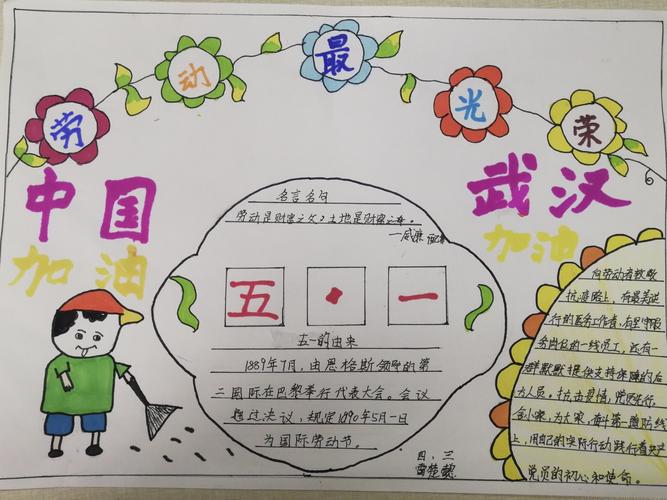 劳动最光荣
中国
加油
武汉
加油
名言名句
劳动是财富之父,土地是财富之母。
—威廉
五·一
五一的由来
1889年7月,由恩格斯领导的第
二国际在巴黎举行代表大会。会议
通过决议,规定1890年5月一日
为国际劳动节。
四、三
向劳动者致敬
抗疫路上,有最美逆
行的医务工作者,有坚守服
务岗位的一线员工,还有一
群默默提供支持保障的后
为人员,抗击疫情,党员先行,
舍小家,为大家,奋斗第一道防线
上,用自己的实际行动践行着共产
党员的初心和使命。